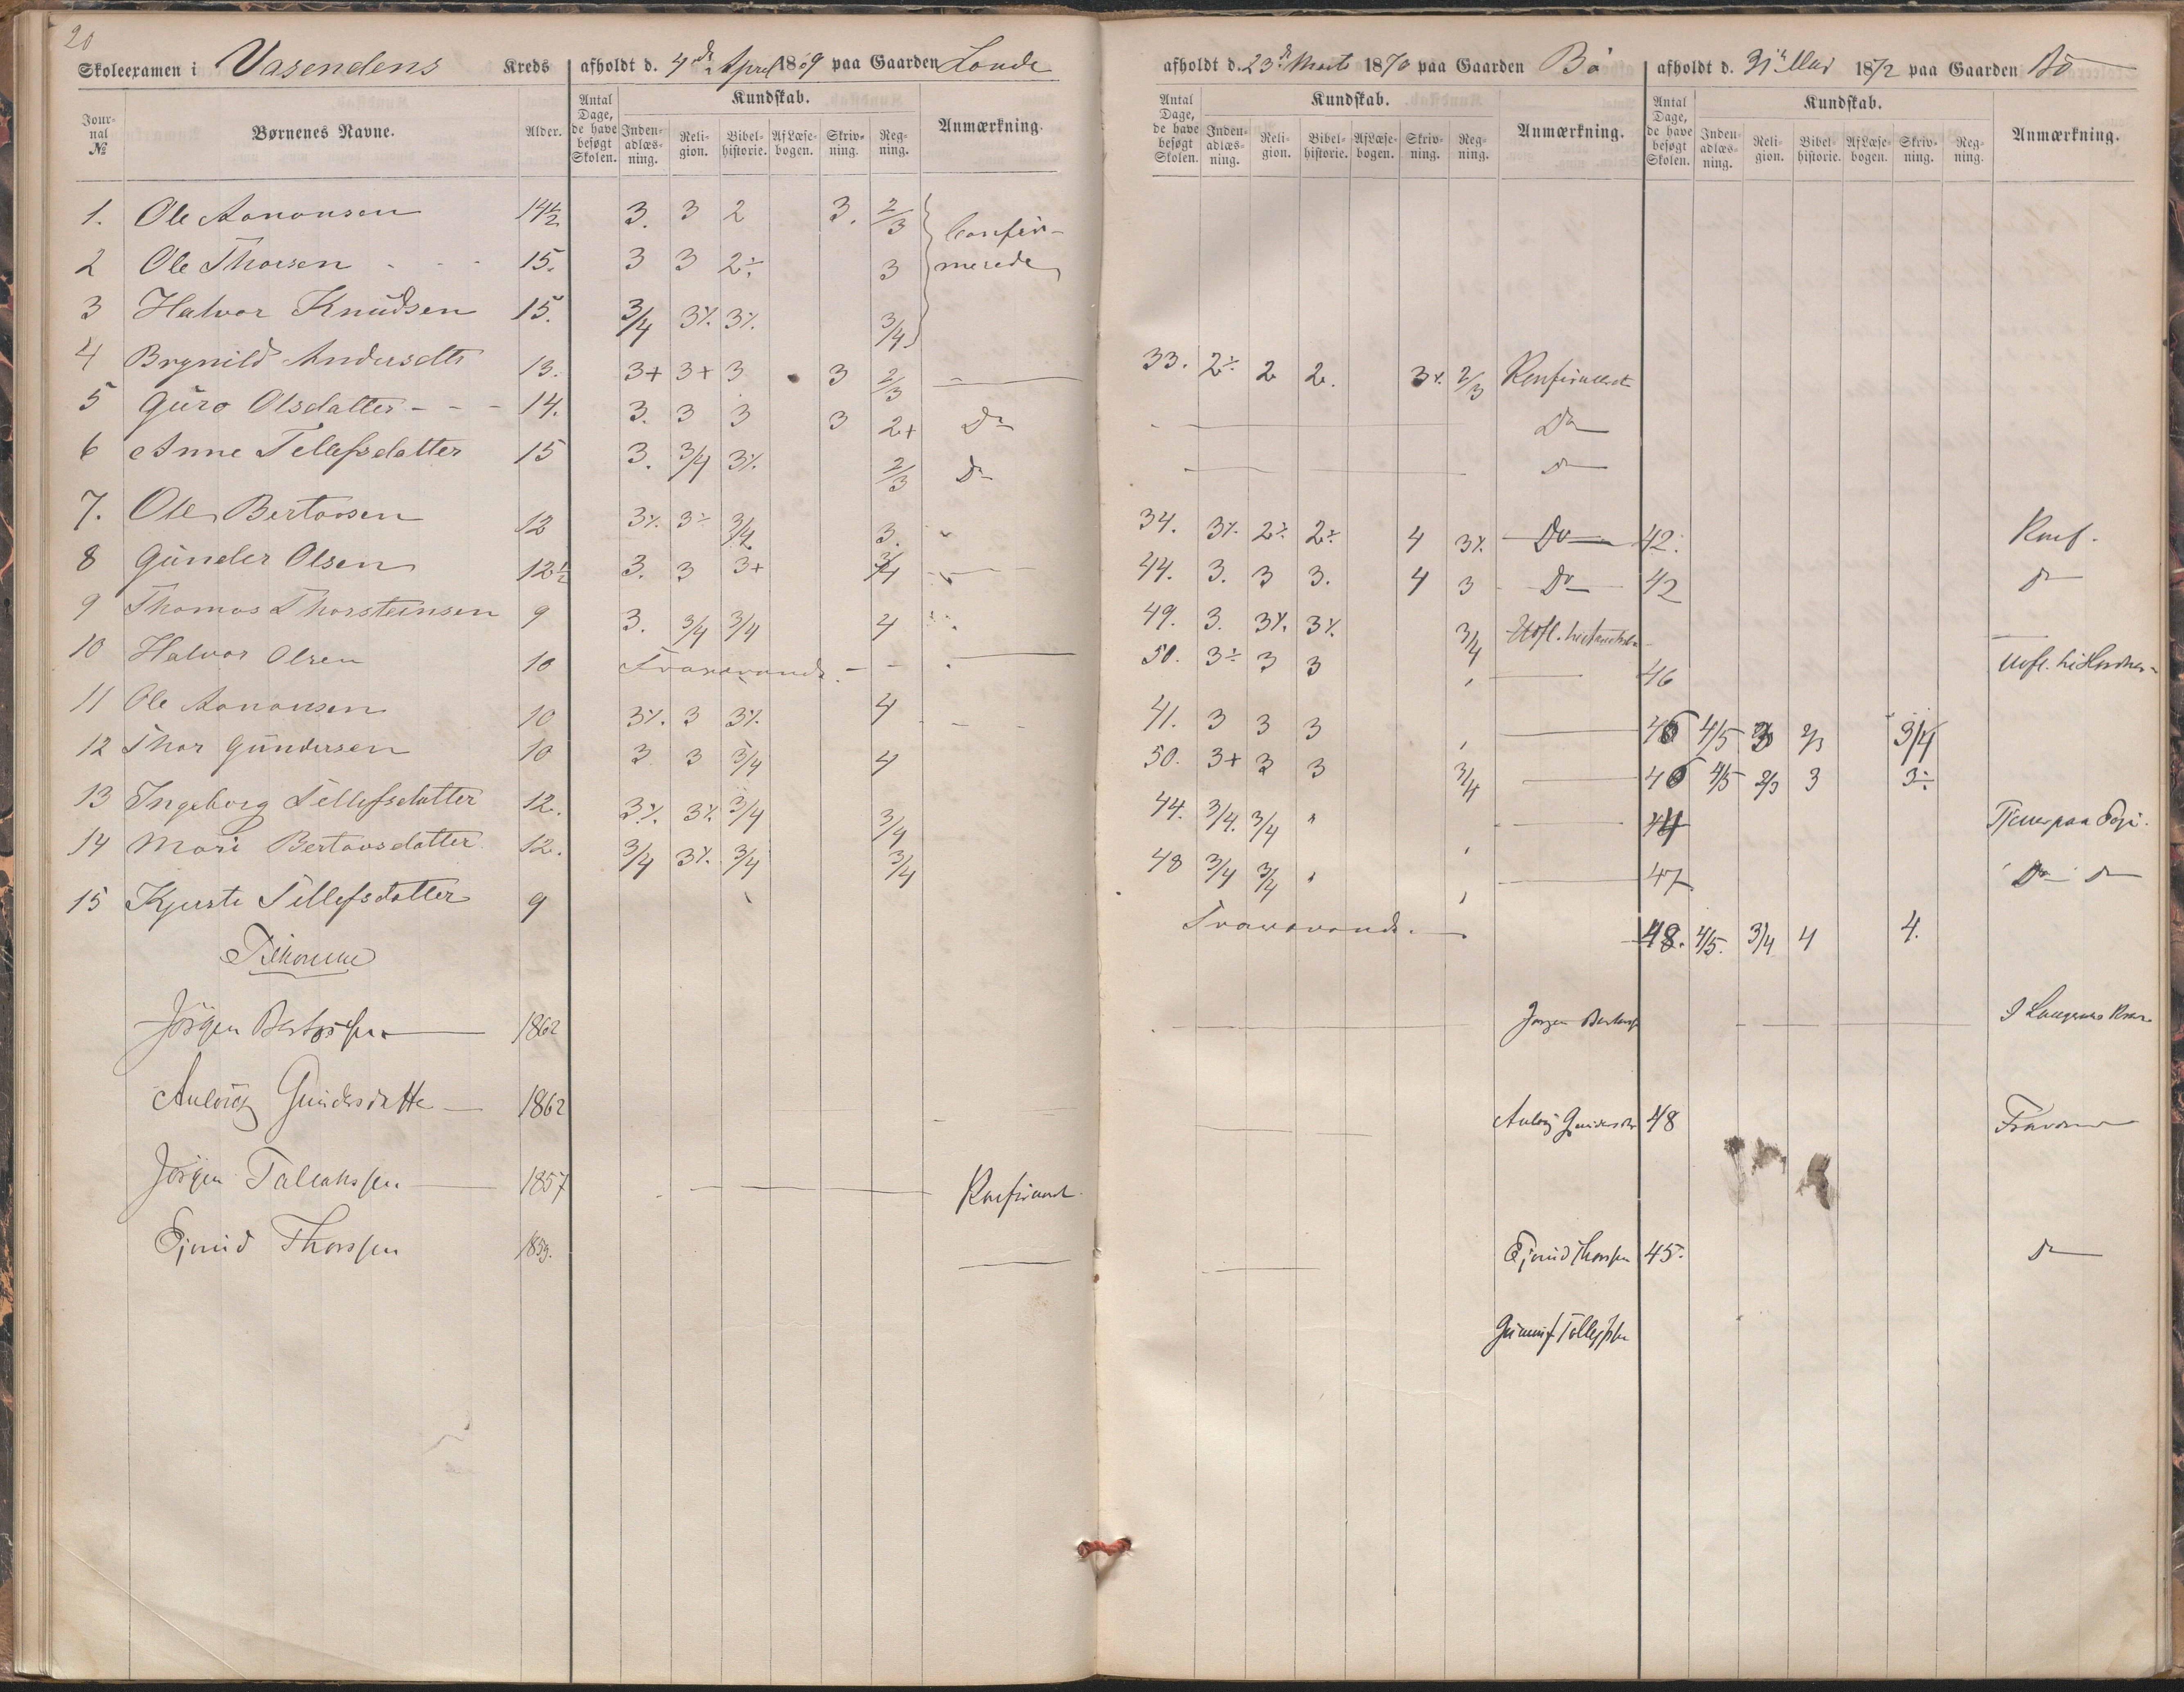 20
Skoleexamen i Vasendens Kreds afholdt d. 4de April 1869 paa Gaarden Londe
afholdt d. 23de Marts 1870 paa Gaarden Bö afholdt d. 31te 1872 paa Gaarden Bö
Journal № Børnenes Navne. Alder. Antal Dage, de have besøgt Skolen. Kundskab. Indenadlæsning. Religion. Bibelhistorie. Af Læsebogen. Skrivning. Regning. Anmærkning.
Antal Dage, de have besøgt Skolen. Kundskab. Indenadlæsning. Religion. Bibelhistorie. Af Læsebogen. Skrivning. Regning. Anmærkning.
Antal Dage, de have besøgt Skolen. Kundskab. Indenadlæsning. Religion. Bibelhistorie. Af Læsebogen. Skrivning. Regning. Anmærkning.
1. Ole Aanonsen 14½ 3. 3 2 3. 2/3 Confir-
2 Ole Thorsen - - - 15. 3 3 2÷ 3 merede
3 Halvor Knudsen 15. 3/4 3% 3% 3/4
4 Brynild Andersdtr 13. 3+ 3+ 3 3 2/3 — 33. 2÷ 2 2. 3% 2/3 Konfirmeret
5 Guro Olsdatter - - - 14. 3. 3 3 3 2+ Do — Do
6 Anne Tellefsdatter 15 3. 3/4 3% 2/3 Do — Do
7. Ole Bertovsen 12 3% 3÷ 3/4 3. " 34. 3% 2÷ 2÷ 4 3% Do 42. Konf.
8 Gunder Olsen 12½ 3. 3 3+ 3/4 " 44. 3. 3 3. 4 3 Do 42 Do
9 Thomas Thorsteinsen 9 3. 3/4 3/4 4 49. 3. 3% 3% 3/4 —
10 Halvor Olsen 10 Fraværende - - — 50. 3÷ 3 3 — 46
11 Ole Aanonsen 10 3% 3 3% 4 - - 41. 3 3 3 — 46 4/5 2/3 2/3 3/4
12 Thor Gundersen 10 3 3 3/4 4 50. 3+ 3 3 3/4 — 46 4/5 2/3 3 3÷
13 Ingeborg Tellefsdatter 12. 3% 3% 3/4 3/4 44. 3/4. 3/4 " — 44
14 Mari Bertovsdatter 12. 3/4 3% 3/4 3/4 48 3/4 3/4 " — 47 Do Do
15 Kjersti Tellefsdatter 9 Fraværende. — 48. 4/5. 3/4 4 4.
Tilkomne
Jörgen Bertovsen — 1862 — Jörgen Bertovs — I
Aulaug Gundersdatter — 1862 — Aulaug Gundersdtr 48
Jörgen — 1857 — Konfirmeret
Ejvind Thorssen 1859. — Ejvind Thorssen 45. Do